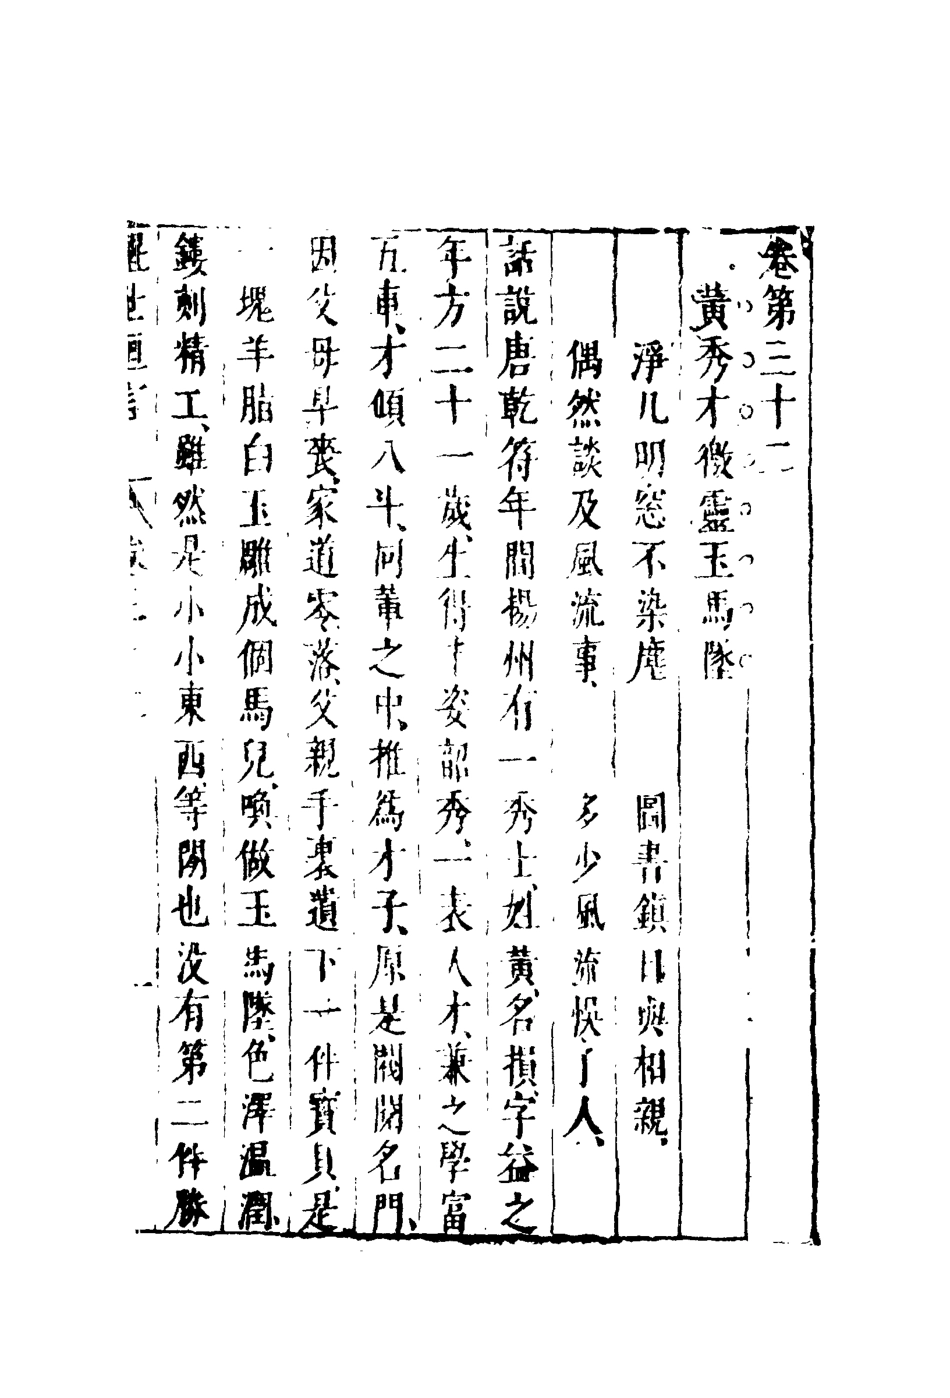 卷第三十二
黃秀才徼靈玉馬墜
淨几明窓不染塵　圖書鎮日與相親
偶然談及風流事　多少風流悞了人
話說唐乾符年間揚州有一秀士姓黃名損字益之
年方二十一歲生得丰姿韶秀一表人才兼之學富
五車才傾八斗同輩之中推爲才子原是閥閱名門
因父母早喪家道零落父親手裏遺下一件寶貝是
一塊羊脂白玉雕成個馬兒喚做玉馬墜色澤溫潤
鏤刻精工雖然是小小東西等閒也没有第二件勝
醒世恒言　卷三十二　一